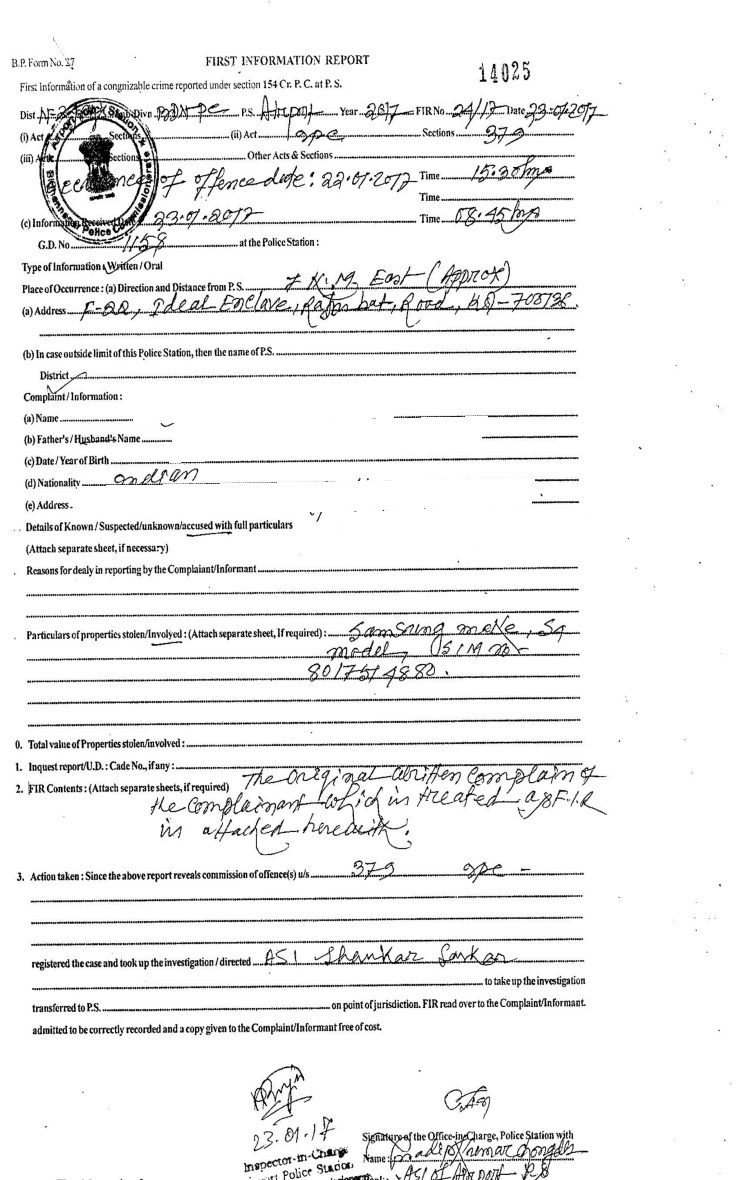 B.P. Form No. 27 FIRST INFORMATION REPORT
14025
First information of a congnizable crime reported under section 154 Cr. P. C. at P. S.
Dist Divn P.S. Airport Year 2017 FIR No. 24/17 Date 23-01-2017
(i) Act Sections (ii) Act IPC Sections 379
(iii) Act Sections Other Acts & Sections
of offence date: 22-01-2017 Time 15.30 hrs
Time
(c) Information Received Date 23-01-2017 Time 08.45 hrs
G.D. No. 1158 at the Police Station :
Type of Information : Written / Oral
Place of Occurrence : (a) Direction and Distance from P. S. 7 K.M. East (Approx)
(a) Address Ideal Enclave, Road,
(b) In case outside limit of this Police Station, then the name of P.S.
District
Complaint / Information :
(a) Name
(b) Father's / Husband's Name
(c) Date / Year of Birth
(d) Nationality Indian
(e) Address
Details of Known / Suspected/unknown/accused with full particulars
(Attach separate sheet, if necessary)
Reasons for dealy in reporting by the Complaiant/Informant
Particulars of properties stolen/Involyed : (Attach separate sheet, If required) : Samsung make,
model, SIM no
8017514880.
0. Total value of Properties stolen/involved :
1. Inquest report/U.D. : Cade No., if any :
2. FIR Contents : (Attach separate sheets, if required) The Original written Complain of
the Complainant which is treated as F.I.R
is attached herewith.
3. Action taken : Since the above report reveals commission of offence(s) u/s 379 IPC -
registered the case and took up the investigation / directed ASI Shankar Sarkar
to take up the investigation
transferred to P.S. on point of jurisdiction. FIR read over to the Complaint/Informant.
admitted to be correctly recorded and a copy given to the Complaint/Informant free of cost.
23.01.17
Signature of the Office-in-Charge, Police Station with
Inspector-in-Charge
Name :
Police Station
ASI of Airport P.S